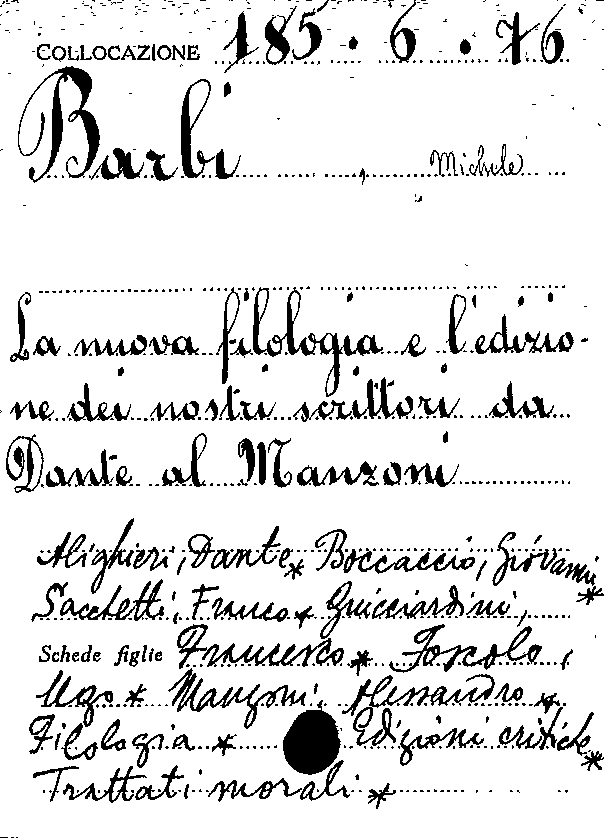 COLLOCAZIONE 185.6.76
Barbi, Michele
La nuova filologia e l'edizio-
ne dei nostri scrittori da
Dante al Manzoni
Alighieri, Dante * Boccaccio, Giovanni *
Sacchetti, Franco * Guicciardini,
Schede figlie Francesco * Foscolo,
Ugo * Manzoni, Alessandro *
Filologia * Edizioni critiche *
Trattati morali *